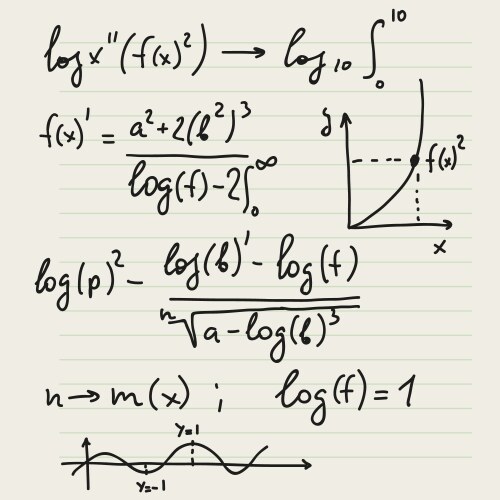 log x''(f(x)²) → log₁₀ ∫₀¹⁰
f(x)' = (a²+2(b²)³) / (log(f)-2∫₀^∞)
y
f(x)²
x
log(p)² - (log(b)' - log(f)) / ⁿ√(a-log(b)³)
n → m(x) ; log(f) = 1
y=1
y=-1